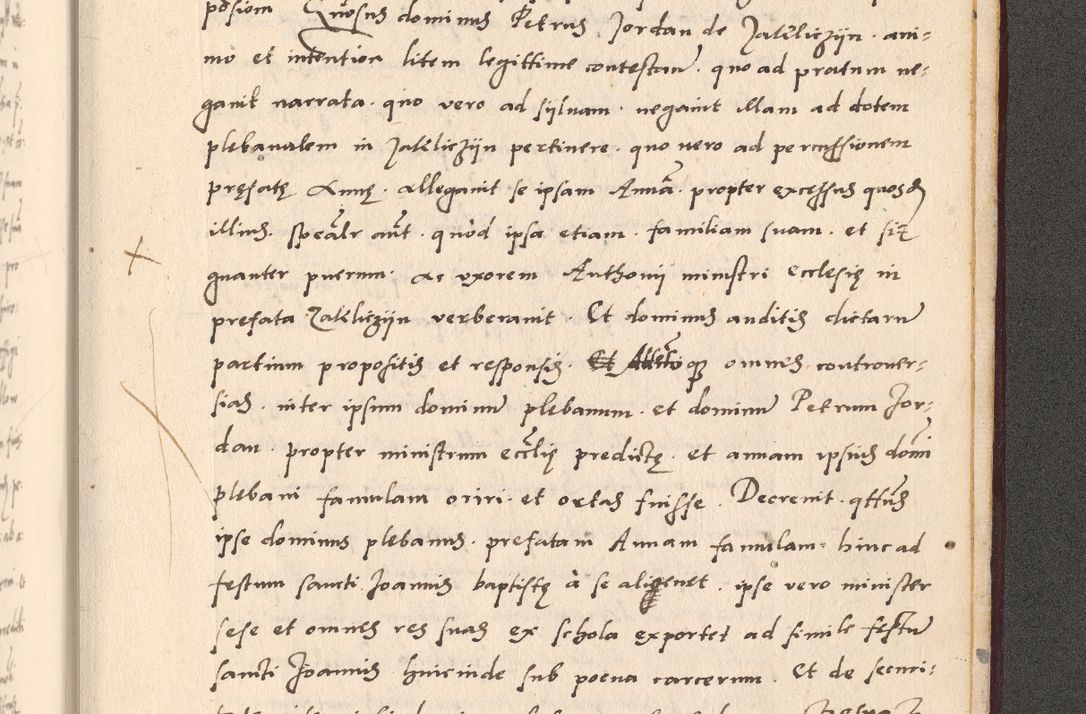 posiom Quosus dominus Petrus Jordan de Zakliczijn . ani-
mo et intentior litem legittime contestanr . quo ad pratum ne-
gavit narrata . quo vero ad sijlvam . negavit illam ad dotem
plebanalem in Zakliczijn pertinere . quo vero ad percussionem
pręfatę Annę . allegavit se ipsam Annã . propter excessus quosdã
illius . spealr aut . quòd ipsa etiam . familiam suam . et sig
gnanter puerum . ac vxorem Anthonij ministri Ecclesię in
prefata Zakliczijn verberavit . Et dominus auditis dictarum
partium propositis et responsis . omnes controver-
sias . inter ipsum dominum plebanum . et dominum Petrum Jor-
dan . propter ministrum ecclię predictę . et annam ipsius domi
plebani famulam oriri . et ortas fuisse . Decrevit . qttus
ipse dominus plebanus . prefatam Annam famulam . hinc ad
festum sancti Joannis baptistę à se aligenet . ipse vero minister
sese et omnes res suas ex schola exportet ad simile festum
sancti Joannis huiusmodi sub poena carcerum . Et de securi-